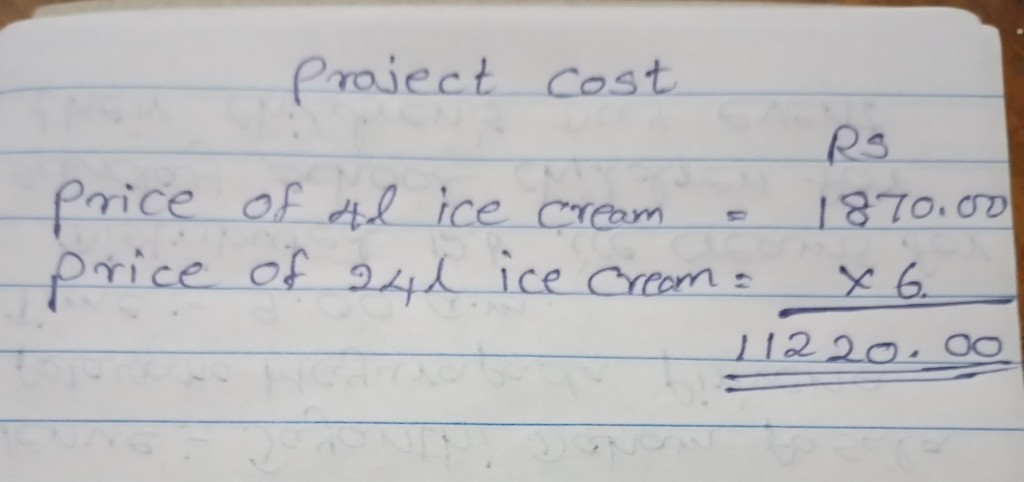 Project cost
Rs
Price of 4l ice cream = 1870.00
Price of 24l ice cream = x 6.
11220.00